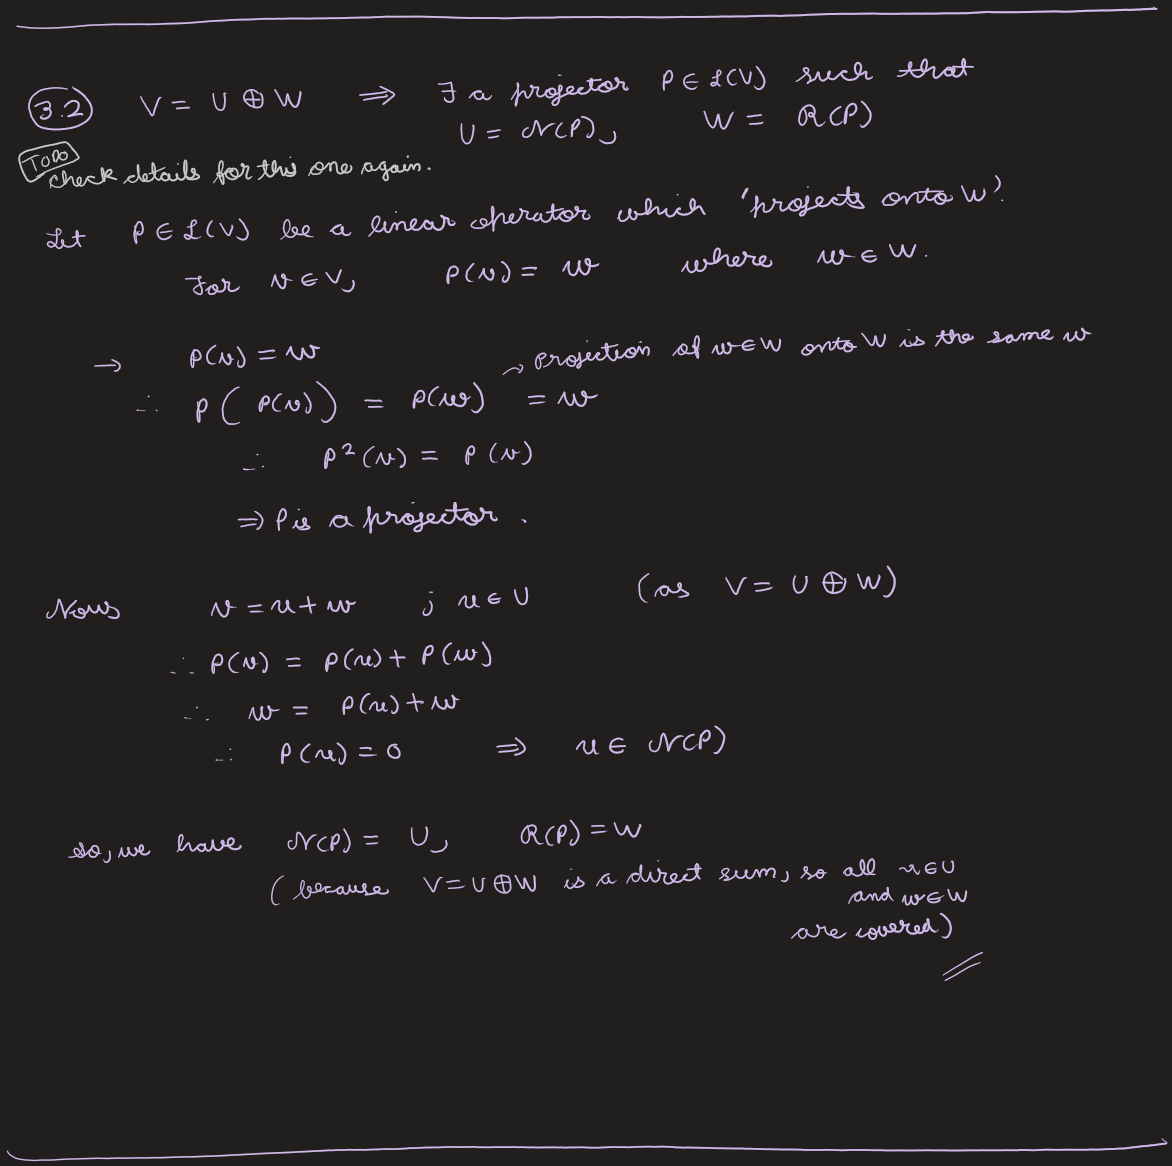 3.2 V = U ⊕ W ⇒ ∃ a projector P ∈ L(V) such that
U = N(P), W = R(P)
TODO
Check details for this one again.
Let P ∈ L(V) be a linear operator which 'projects onto W'.
For v ∈ V, P(v) = w where w ∈ W.
→ P(v) = w → projection of w ∈ W onto W is the same w
∴ P( P(v) ) = P(w) = w
∴ P²(v) = P(v)
⇒ P is a projector.
Now v = u + w ; u ∈ U (as V = U ⊕ W)
∴ P(v) = P(u) + P(w)
∴ w = P(u) + w
∴ P(u) = 0 ⇒ u ∈ N(P)
So, we have N(P) = U, R(P) = W
(because V = U ⊕ W is a direct sum, so all u ∈ U
and w ∈ W
are covered)